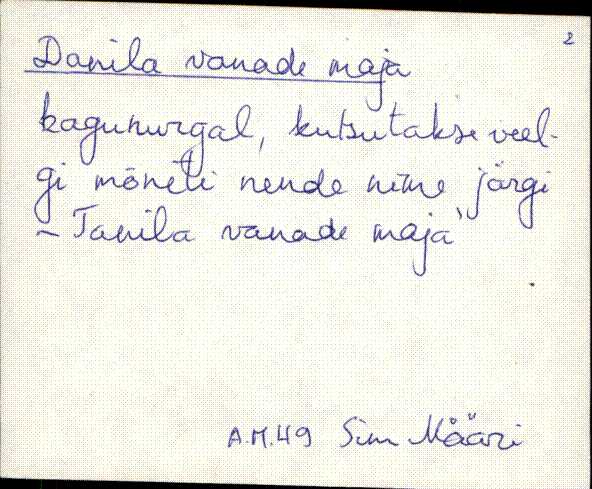 2
Danila vanade maja
kagunurgal, kutsutakse veel-
gi mõneti nende nime järgi
~ Tanila vanade maja"
A.M.49 Sim Määri